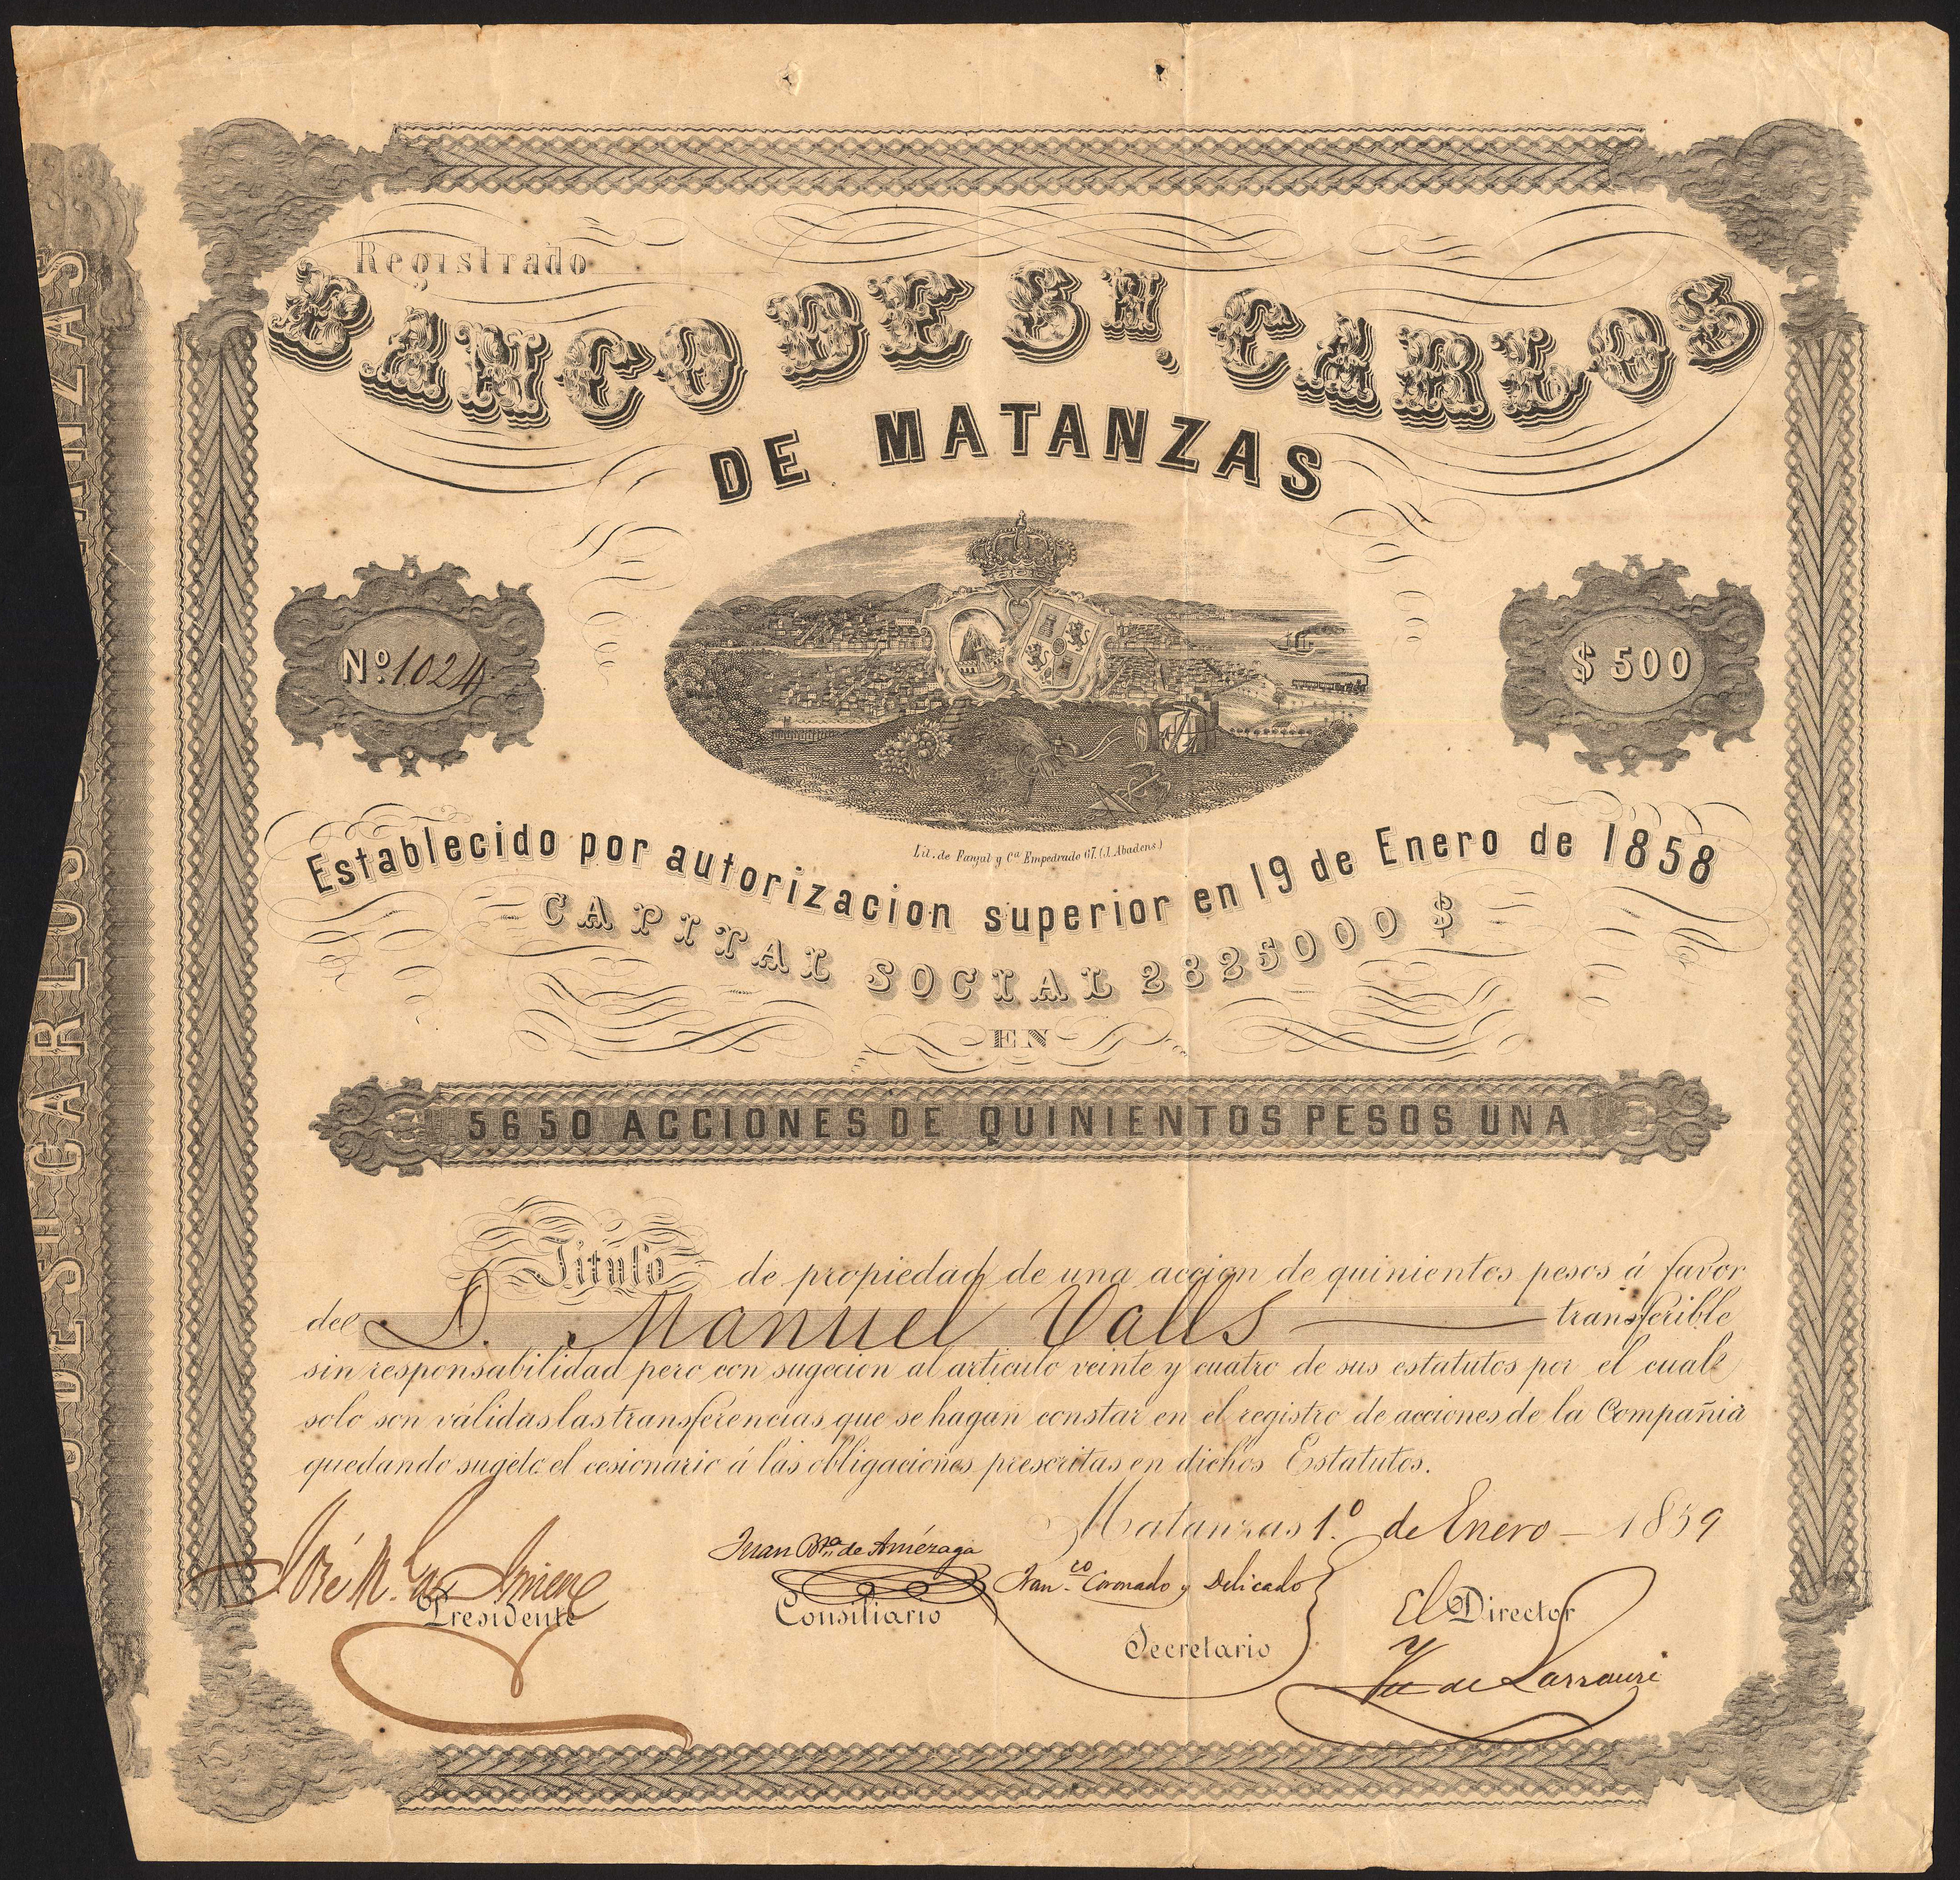 Registrado
BANCO DE Sn. CARLOS
DE MATANZAS
No. 1024
$ 500
Lit. de Fanjul y Ca. Empedrado 67. (J. Abadens)
Establecido por autorizacion superior en 19 de Enero de 1858
CAPITAL SOCIAL 2825000 $
EN
5650 ACCIONES DE QUINIENTOS PESOS UNA
Titulo de propiedad de una accion de quinientos pesos á favor
del D. Manuel Valls transferible
sin responsabilidad pero con sugecion al articulo veinte y cuatro de sus estatutos por el cual
solo son válidas las transferencias que se hagan constar en el registro de acciones de la Compañia
quedando sugeto el cesionario á las obligaciones prescritas en dichos Estatutos.
Matanzas 1.º de Enero 1859
José M.
Presidente
Juan Bta. de Amézaga
Consiliario
Franco. Coronado y Delicado
Secretario
El Director
de Larrauri
DE Sn. CARLOS